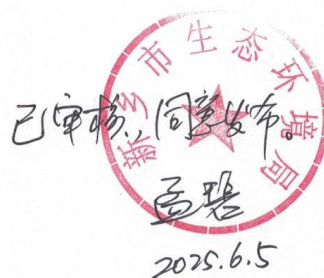 新乡市生态环境局
已审核,同意发布。
2025.6.5